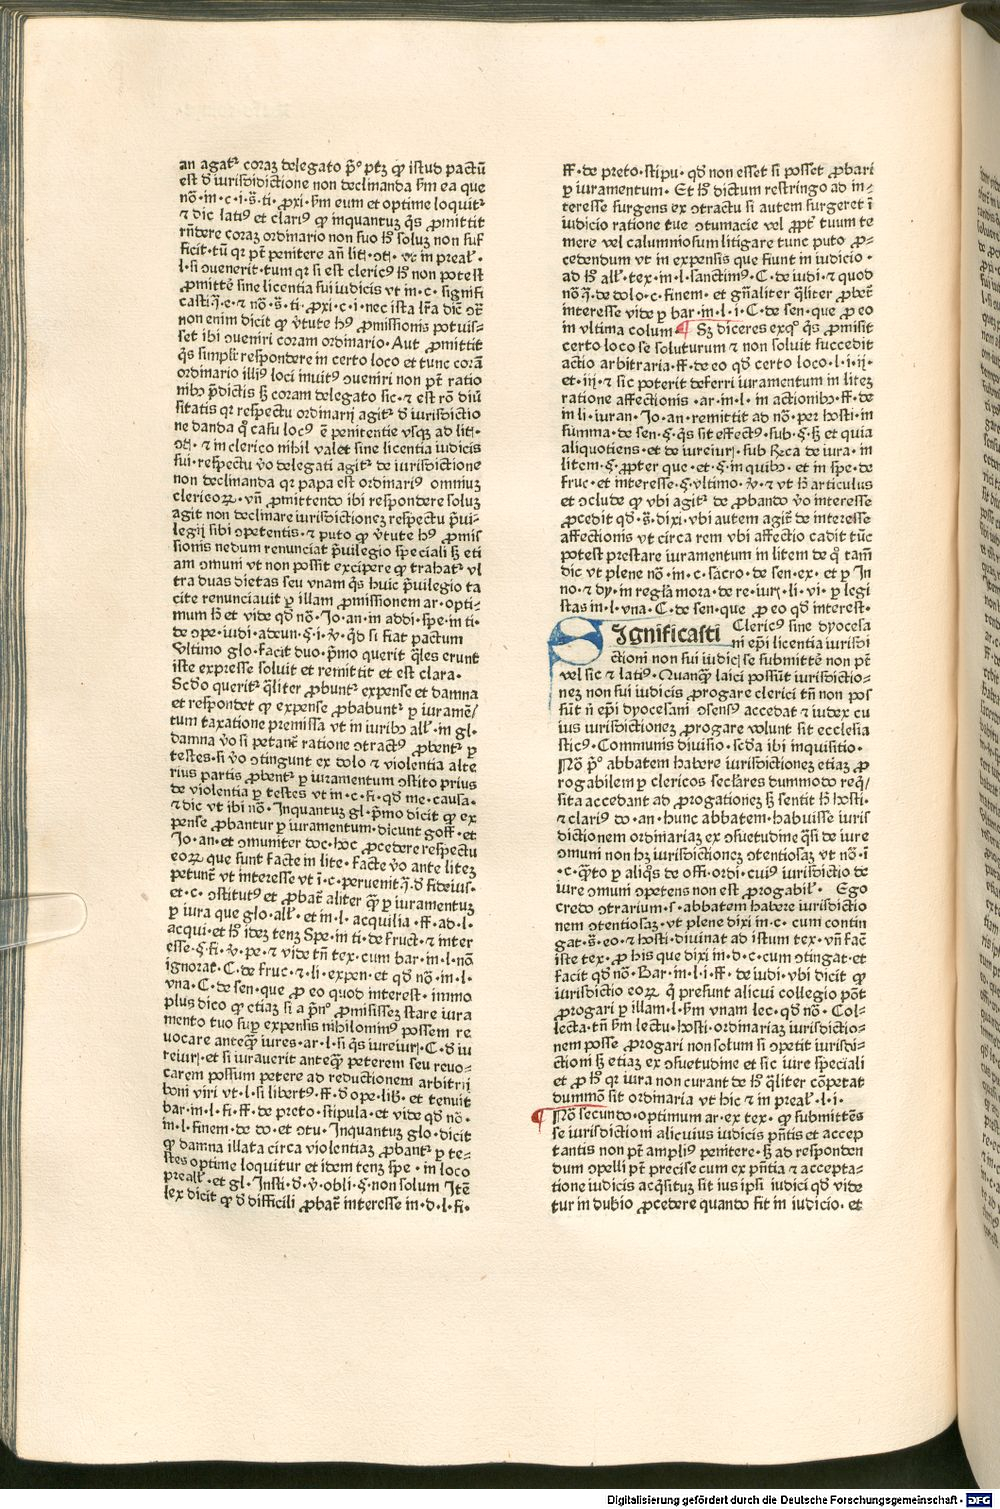 an agat᷑ coraꝫ delegato p̄º ptꝫ ꝙ istud pactū
est đ iurisdidictione non declinanda ẜm ea que
nō·in·c·i·s̄·ti·ꝓxi·ẜm eum et optime loquit᷑
⁊ dic latiꝰ et clariꝰ ꝙ inquantuꝫ q̄s ꝓmittit
rn̄dere coraꝫ ordinario non suo hͦ soluꝫ non suf
ficit·tū qꝛ pt̄ penitere an̄ liti·ↄti· vt in preal̄l·
l·si ↄuenerit·tum qꝛ si est clericꝰ hͦ non potest
ꝓmittē sine licentia sui iudicis vt in·c·signifi
casti·j̄·e·⁊ nō·s̄·ti·ꝓxi·c·i·nec ista lr̄a dic̄ ↄr̄
non enim dicit ꝙ v̄tute hꝰ ꝓmissionis potuis-
set ibi ↄueniri coram ordinario· Aut ꝓmittit
q̄s simplr̄ respondere in certo loco et tunc corā
ordinario illiꝰ loci inuitꝰ ↄueniri non pt̄ ratio
nibꝫ p̄dictis ꝫ coram delegato sic·⁊ est rō diū
sitatis qꝛ respectu ordinarij agit᷑ đ iurisdictio
ne danda q̄ casu locꝰ ē penitentie vsqꝫ ad liti·
ↄti·⁊ in clerico nihil valet sine licentia iudicis
sui·respectu v̄o delegati agit᷑ de iurisdictione
non declinanda qꝛ papa est ordinariꝰ omniuꝫ
clericoꝝ·vn̄ ꝓmittendo ibi respondere soluꝫ
agit non declinare iurisdictioneꝫ respectu p̄ui-
legij sibi ↄpetentis·⁊ puto ꝙ v̄tute hꝰ ꝓmis
sionis nedum renunciat p̄uilegio speciali ꝫ eti
am ↄmuni vt non possit excipere ꝙ trahat᷑ vl
tra duas dietas seu vnam q̄s huic p̄uilegio ta
cite renunciauit ꝑ illam ꝓmissionem ar·opti-
mum hͦ et vide qđ nō·Io·an·in addi·spe·in ti·
de ↄpe·iudi·adeun·§·i·v̄·qđ si fiat pactum
Vltimo glo·facit duo·p̄mo querit q̄les erunt
iste expresse soluit et remittit et est clara·
Scđo querit᷑ q̄liter ꝓbunt᷑ expense et damna
et respondet ꝙ expense ꝓbabunt᷑ ꝑ iuramē/
tum taxatione premissa vt in iuribꝫ al̄l·in gl·
damna v̄o si petanē ratione ↄtractꝰ ꝓbent᷑ ꝑ
testes·si v̄o ↄtingunt ex dolo ⁊ violentia alte
rius partis ꝓbent᷑ ꝑ iuramentum ↄstito prius
de violentia ꝑ testes vt in·c·fi·qđ me·causa·
⁊ dic vt ibi nō· Inquantuꝫ gl·p̄mo dicit ꝙ ex
pense ꝓbantur ꝑ iuramentum·dicunt goff·et
Io·an·et ↄmuniter doc·hoc ꝓcedere respectu
eoꝝ que sunt facte in lite·facte v̄o ante liteꝫ
petunt᷑ vt interesse vt ī·c·peruenit·j̄·đ fideius·
et·c·ↄstitutꝰ et ꝓbat᷑ aliter q̄ꝫ ꝑ iuramentuꝫ
ꝑ iura que glo·al̄l·et in·l·acquilia·ff·ad·l·
acqui·et hͦ ideꝫ tenꝫ Spe·in ti·de fruct·⁊ inter
esse·§·fi·v̄·pe·⁊ vide tn̄ tex·cum bar·in·l·nō
ignorat·C·de fruc·⁊ li·expen·et qđ nō·in·l·
vna·C·de sen·que ꝓ eo quod interest·immo
plus dico ꝙ etiaꝫ si a p̄nº ꝓmisisseꝫ stare iura
mento tuo suꝑ expensis nihilominꝰ possem re
uocare anteq̄ꝫ iures·ar·l·si q̄s iureiurꝭ·C·đ iu
reiurꝭ·et si iurauerit anteq̄ꝫ peterem seu reuo-
carem possum petere ad reductionem arbitrij
boni viri vt·l·si libertꝰ·ff·đ ope·lib̄·et tenuit
bar·in·l·fi·ff·de preto·stipula·et vide qđ nō·
in·l·finem·de do·et ↄtu·Inquantuꝫ glo·dicit
ꝙ damna illata circa violentiaꝫ ꝓbant᷑ ꝑ te-
stes optime loquitur et idem tenꝫ spe·in loco
preal̄l·et gl·Insti·đ·v̄·obli·§·non solum Itē
lex dicit ꝙ đ difficili ꝓbat᷑ interesse in·d·l·fi·
ff·de preto·stipu·qđ non esset si posset ꝓbari
ꝑ iuramentum· Et hͦ dictum restringo ad in-
teresse surgens ex ↄtractu si autem surgeret ī
iudicio ratione tue ↄtumacie vel ꝓpt᷑ tuum te
mere vel calumniosum litigare tunc puto ꝓ-
cedendum vt in expensis que fiunt in iudicio·
ad hͦ al̄l·tex·in·l·sanctimꝰ·C·de iudi·⁊ quod
nō·j̄·de dolo·c·finem·et gn̄aliter q̄liter ꝓbet᷑
interesse vide ꝑ bar·in·l·i·C·de sen·que ꝓ eo
in vltima colum· ¶ Sꝫ diceres exqº q̄s ꝓmisit
certo loco se soluturum ⁊ non soluit succedit
actio arbitraria·ff·de eo qđ certo loco·l·i·ij·
et·iij·⁊ sic poterit deferri iuramentum in liteꝫ
ratione affectionis·ar·in·l·in actionibꝫ·ff·de
in li·iuran·Io·an·remittit ad nō·per hosti·in
summa·de sen·§·q̄s sit effectꝰ·sub·§·ꝫ et quia
aliquotiens·et de iureiurꝭ·sub Rͬca de iura·in
litem·§·ꝓpter que·et·§·in quibꝫ·et in spe·de
fruc·et interesse·§·vltimo·v̄·⁊ vt hͦ articulus
et ↄclude ꝙ vbi agit᷑ de ꝓbando v̄o interesse
ꝓcedit qđ·s̄·dixi·vbi autem agit᷑ de interesse
affectionis vt circa rem vbi affectio cadit tūc
potest prestare iuramentum in litem de qº tam̄
dic vt plene nō·in·c·sacro·de sen·ex·et ꝑ In
no·⁊ dy·in regl̄a mora·de re·iurꝭ·li·vi·ꝑ legi
stas in·l·vna·C·de sen·que ꝓ eo qđ interest·
SIgnificasti Clericꝰ sine dyocesa
ni ep̄i licentia iurisdi
ctioni non sui iudicꝭ se submittē non pt̄
vel sic ⁊ latiꝰ·Quanq̄ꝫ laici possūt iurisdictio-
neꝫ non sui iudicis ꝓrogare clerici tn̄ non pos
sūt n̄ ep̄i dyocesani ↄsensꝰ accedat ⁊ iudex cu
ius iurisdictioneꝫ ꝓrogare volunt sit ecclesia
sticꝰ·Communis diuisio·scđa ibi inquisitio·
Nō p̄º abbatem habere iurisdictioneꝫ etiaꝫ ꝓ
rogabilem ꝑ clericos secl̄ares dummodo req̄/
sita accedant ad ꝓrogationeꝫ ꝫ sentit hͦ hosti·
⁊ clariꝰ do·an·hunc abbatem·habuisse iuris
dictionem ordinariaꝫ ex ↄsuetudine q̄si de iure
ↄmuni non hꝫ iurisdictioneꝫ ↄtentiosaꝫ vt nō·ī
·c·q̄to ꝑ aliq̄s de offi·ordi·cuiꝰ iurisdictio de
iure ↄmuni ↄpetens non est ꝓrogabil̄· Ego
credo ↄtrarium·s·abbatem habere iurisdictio
nem ↄtentiosaꝫ·vt plene dixi in·c·cum contin
gat·s̄·eo·⁊ hosti·diuinat ad istum tex·vn̄ fac̄
iste tex·ꝓ his que dixi in·d·c·cum ↄtingat·et
facit qđ nō·Bar·in·l·i·ff·de iudi·vbi dicit ꝙ
iurisdictio eoꝝ q̄ presunt alicui collegio pōt
ꝓrogari ꝑ illam·l·ẜm vnam lec·qđ nō·Col-
lecta·tn̄ ẜm lectu·hosti·ordinariaꝫ iurisdictio-
nem posse ꝓrogari non solum si ↄpetit iurisdi-
ctioni ꝫ etiaꝫ ex ↄsuetudine et sic iure speciali
et ꝓ hͦ qꝛ iura non curant de hͦ q̄liter cōpetat
dummō sit ordinaria vt hic ⁊ in preal̄l·l·i·
¶ Nō secundo·optimum ar·ex tex·ꝙ submittēs
se iurisdictioni alicuius iudicis pn̄tis et accep
tantis non pt̄ ampliꝰ penitere·ꝫ ad responden
dum ↄpelli pt̄ precise cum ex pn̄tia ⁊ accepta-
tione iudicis acq̄situꝫ sit ius ipsi iudici qđ vide
tur in dubio ꝓcedere quando fit in iudicio·et
Digitalisierung gefördert durch die Deutsche Forschungsgemeinschaft - DFG